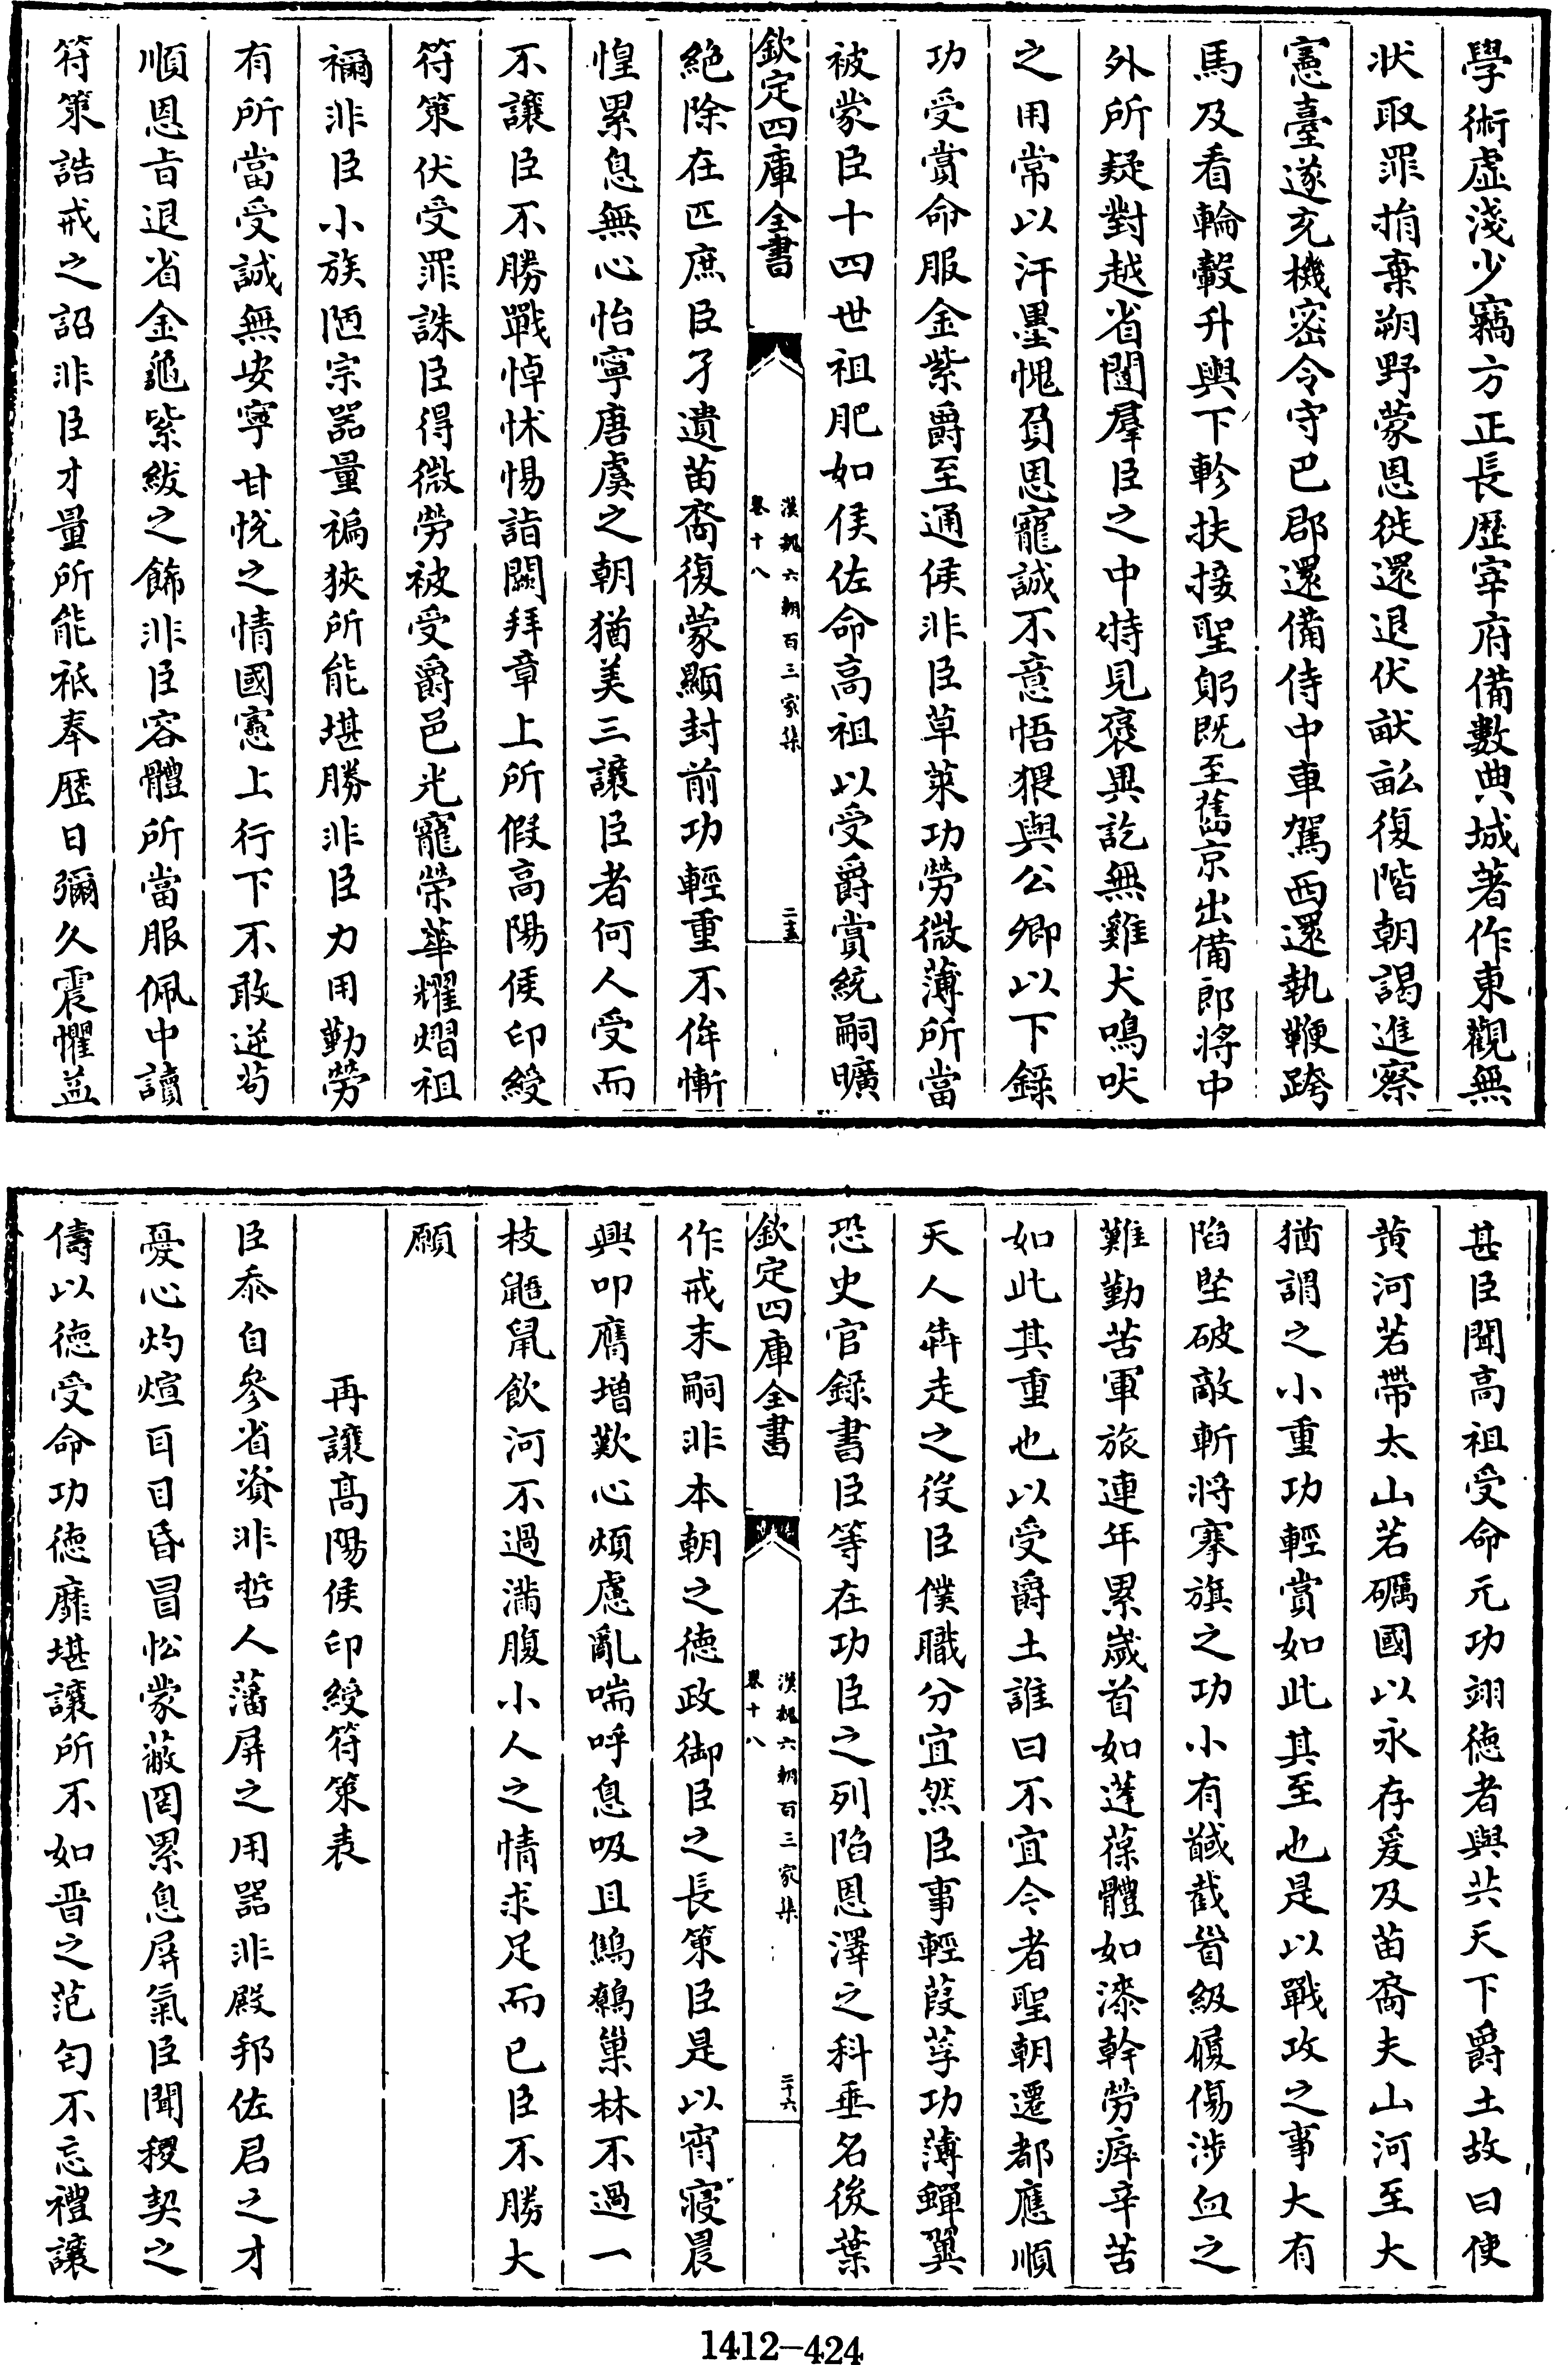 學術虛淺少竊方正長歴宰府備數典城著作東觀無
狀取罪捐棄朔野蒙恩徙還退伏畎畝復階朝謁進察
憲臺遂充機密令守巴郡還備侍中車駕西還執鞭跨
馬及看輪轂升輿下軫扶接聖躬既至舊京出備郎將中
外所疑對越省闥羣臣之中特見褒異訖無雞犬鳴吠
之用常以汗墨愧負恩寵誠不意悟猥與公卿以下錄
功受賞命服金紫爵至通侯非臣草萊功勞微薄所當
被蒙臣十四世祖肥如侯佐命高祖以受爵賞統嗣曠
欽定四庫全書
漢魏六朝百三家集
卷十八
二十五
絶除在匹庶臣孑遺苗裔復蒙顯封前功輕重不侔慚
惶累息無心怡寧唐虞之朝猶美三讓臣者何人受而
不讓臣不勝戰悼怵惕詣闕拜章上所假高陽侯印綬
符策伏受罪誅臣得微勞被受爵邑光寵榮華耀熠祖
禰非臣小族陋宗器量褊狹所能堪勝非臣力用勤勞
有所當受誠無安寧甘悅之情國憲上行下不敢逆茍
順恩旨退省金龜紫紱之飾非臣容體所當服佩中讀
符策誥戒之詔非臣才量所能祗奉歴日彌久震懼益
甚臣聞高祖受命元功翊德者與共天下爵土故曰使
黄河若帶太山若礪國以永存爰及苗裔夫山河至大
猶謂之小重功輕賞如此其至也是以戰攻之事大有
陷堅破敵斬將搴旗之功小有馘截首級履傷涉血之
難勤苦軍旅連年累歲首如蓬葆體如漆幹勞瘁辛苦
如此其重也以受爵土誰曰不宜今者聖朝遷都應順
天人犇走之役臣僕職分宜然臣事輕葭莩功薄蟬翼
恐史官錄書臣等在功臣之列陷恩澤之科垂名後葉
欽定四庫全書
漢魏六朝百三家集
卷十八
二十六
作戒末嗣非本朝之德政御臣之長策臣是以宵寢晨
興叩膺増歎心煩慮亂喘呼息吸且鷦鷯巢林不過一
枝鼴鼠飲河不過滿腹小人之情求足而已臣不勝大
願
再讓高陽侯印綬符策表
臣忝自參省資非哲人藩屏之用器非殿邦佐君之才
憂心灼煊耳目昏冒忪蒙蔽罔累息屏氣臣聞稷契之
儔以德受命功德靡堪讓所不如晋之范匄不忘禮讓
1412-424